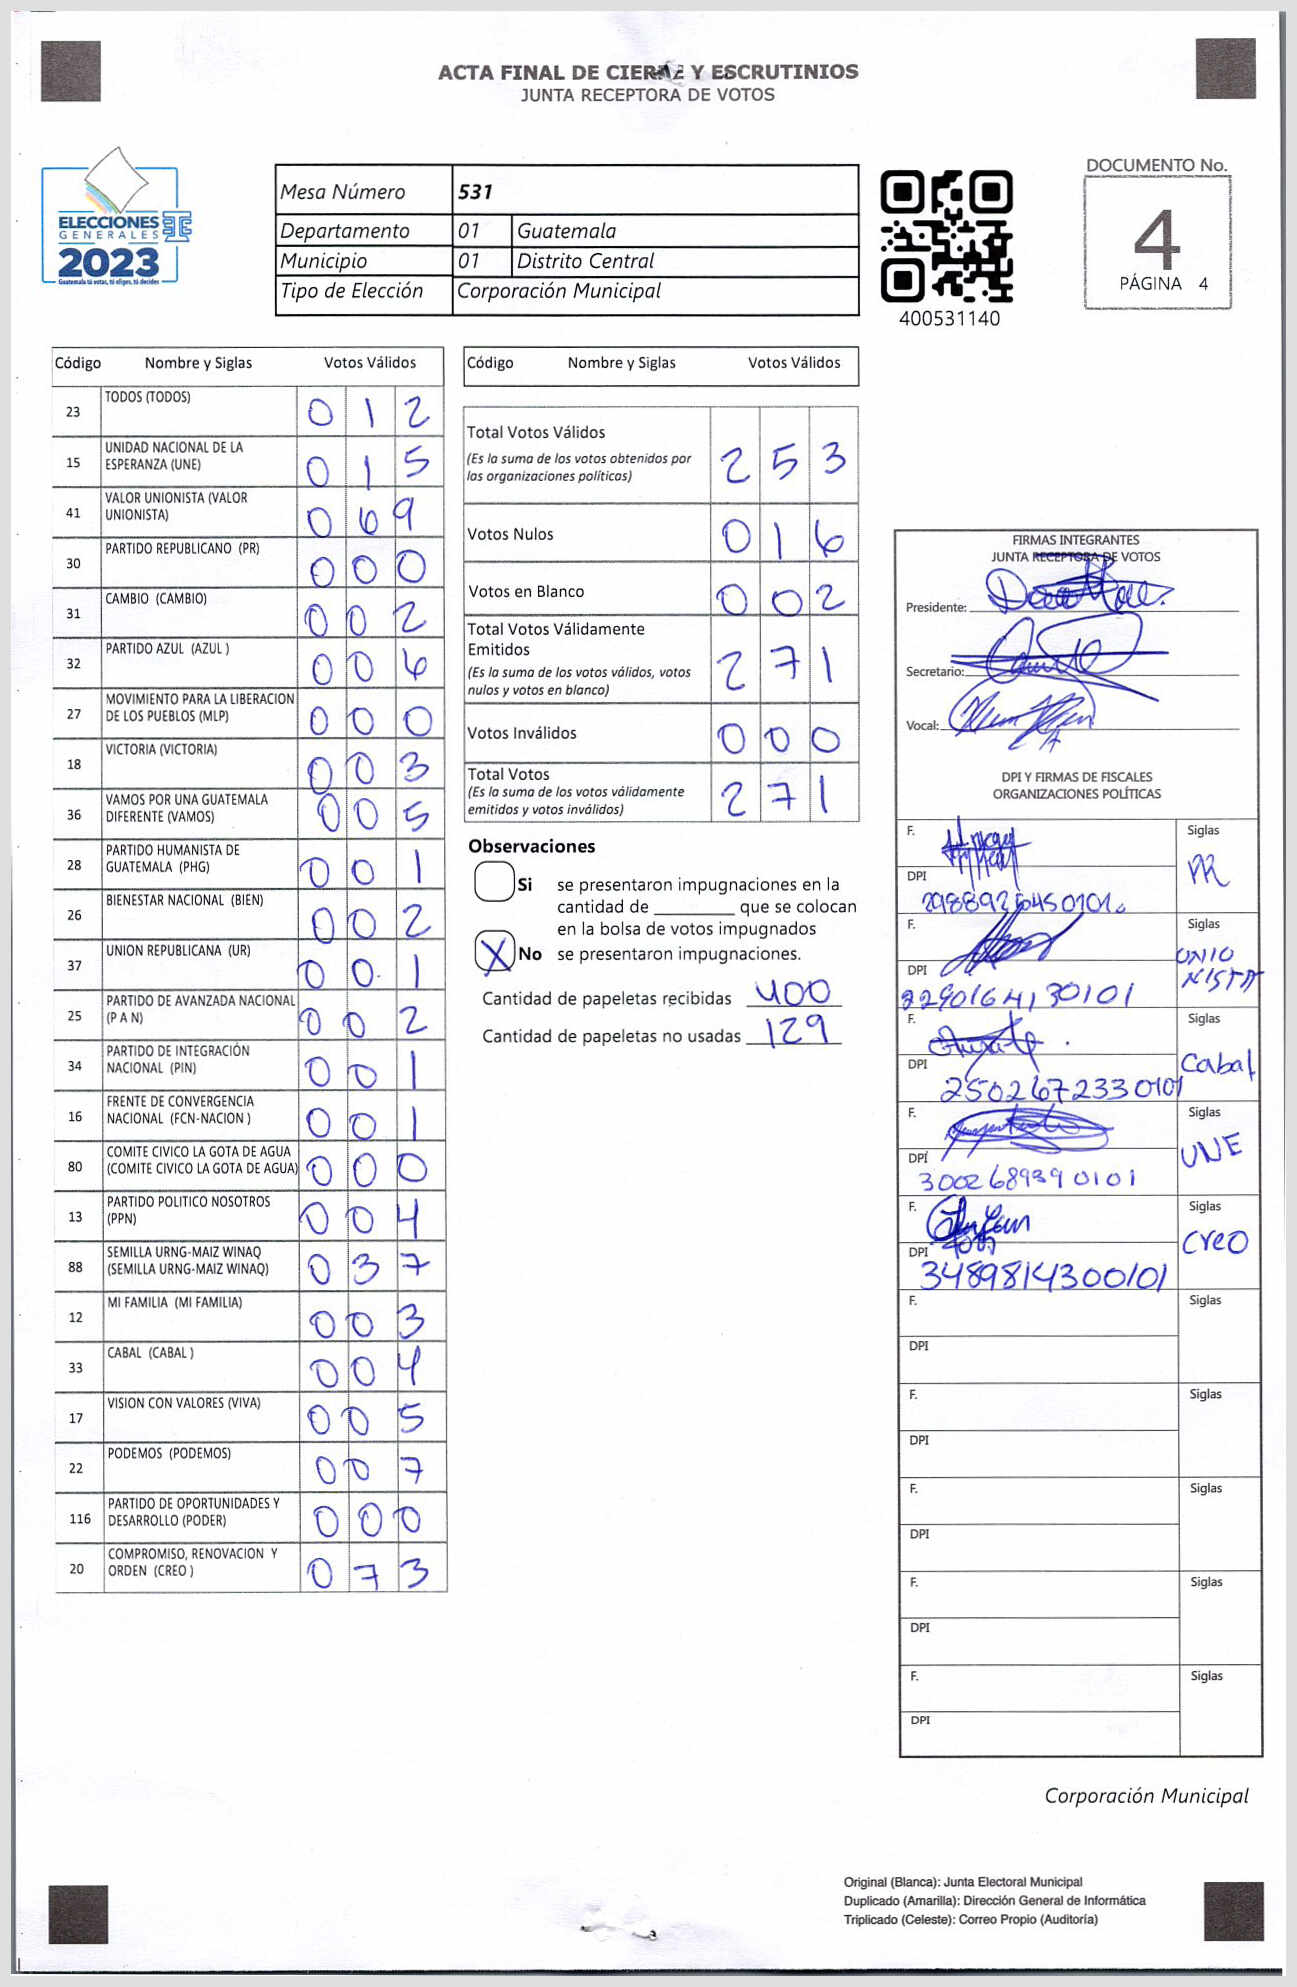 ACTA FINAL DE CIERRE Y ESCRUTINIOS
JUNTA RECEPTORA DE VOTOS
ELECCIONES
GENERALES
2023
Guatemala tú votas, tú eliges, tú decides
Mesa Número 531
Departamento 01 Guatemala
Municipio 01 Distrito Central
Tipo de Elección Corporación Municipal
400531140
DOCUMENTO No.
4
PÁGINA 4
Código Nombre y Siglas Votos Válidos
23 TODOS (TODOS) 0 1 2
15 UNIDAD NACIONAL DE LA
ESPERANZA (UNE) 0 1 5
41 VALOR UNIONISTA (VALOR
UNIONISTA) 0 6 9
30 PARTIDO REPUBLICANO (PR) 0 0 0
31 CAMBIO (CAMBIO) 0 0 2
32 PARTIDO AZUL (AZUL ) 0 0 6
27 MOVIMIENTO PARA LA LIBERACION
DE LOS PUEBLOS (MLP) 0 0 0
18 VICTORIA (VICTORIA) 0 0 3
36 VAMOS POR UNA GUATEMALA
DIFERENTE (VAMOS) 0 0 5
28 PARTIDO HUMANISTA DE
GUATEMALA (PHG) 0 0 1
26 BIENESTAR NACIONAL (BIEN) 0 0 2
37 UNION REPUBLICANA (UR) 0 0 1
25 PARTIDO DE AVANZADA NACIONAL
(P A N) 0 0 2
34 PARTIDO DE INTEGRACIÓN
NACIONAL (PIN) 0 0 1
16 FRENTE DE CONVERGENCIA
NACIONAL (FCN-NACION ) 0 0 1
80 COMITE CIVICO LA GOTA DE AGUA
(COMITE CIVICO LA GOTA DE AGUA) 0 0 0
13 PARTIDO POLITICO NOSOTROS
(PPN) 0 0 4
88 SEMILLA URNG-MAIZ WINAQ
(SEMILLA URNG-MAIZ WINAQ) 0 3 7
12 MI FAMILIA (MI FAMILIA) 0 0 3
33 CABAL (CABAL ) 0 0 4
17 VISION CON VALORES (VIVA) 0 0 5
22 PODEMOS (PODEMOS) 0 0 7
116 PARTIDO DE OPORTUNIDADES Y
DESARROLLO (PODER) 0 0 0
20 COMPROMISO, RENOVACION Y
ORDEN (CREO ) 0 7 3
Código Nombre y Siglas Votos Válidos
Total Votos Válidos
(Es la suma de los votos obtenidos por
las organizaciones políticas) 2 5 3
Votos Nulos 0 1 6
Votos en Blanco 0 0 2
Total Votos Válidamente
Emitidos
(Es la suma de los votos válidos, votos
nulos y votos en blanco) 2 7 1
Votos Inválidos 0 0 0
Total Votos
(Es la suma de los votos válidamente
emitidos y votos inválidos) 2 7 1
Observaciones
Si se presentaron impugnaciones en la
cantidad de ________ que se colocan
en la bolsa de votos impugnados
X No se presentaron impugnaciones.
Cantidad de papeletas recibidas 400
Cantidad de papeletas no usadas 129
FIRMAS INTEGRANTES
JUNTA RECEPTORA DE VOTOS
Presidente:
Secretario:
Vocal:
DPI Y FIRMAS DE FISCALES
ORGANIZACIONES POLÍTICAS
F. Siglas
PR
DPI
F. Siglas
UNIO
NISTA
DPI 2290164130101
F. Siglas
Cabal
DPI 2502672330101
F. Siglas
UNE
DPI 3002689390101
F. Siglas
Creo
DPI 3489814300101
F. Siglas
DPI
F. Siglas
DPI
F. Siglas
DPI
F. Siglas
DPI
F. Siglas
DPI
Corporación Municipal
Original (Blanca): Junta Electoral Municipal
Duplicado (Amarilla): Dirección General de Informática
Triplicado (Celeste): Correo Propio (Auditoría)